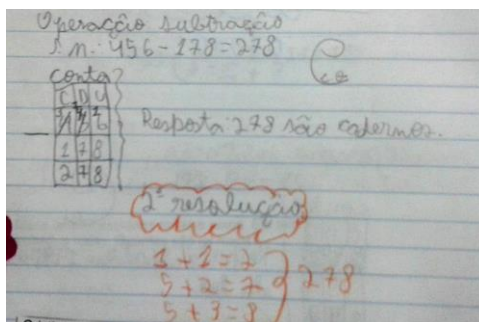 Operação subtração
S.M.: 456 - 178 = 278
Conta
C D U
4 5 6
1 7 8
2 7 8
Resposta: 278 são cadernos.
2ª resolução
1 + 1 = 2
5 + 2 = 7
5 + 3 = 8
278